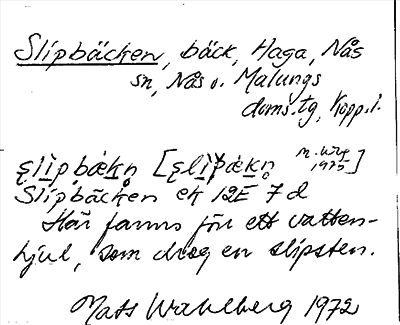 Slipbäcken, bäck, Haga, Nås
sn, Nås o. Malungs
doms.tg, Kopp.l.
șli̱pbækn̥ [șli̱pækn̥ M. Wbg
1975]
Slipbäcken ek 12E 7d
Här fanns för ett vatten-
hjul, som drog en slipsten.
Mats Wahlberg 1972